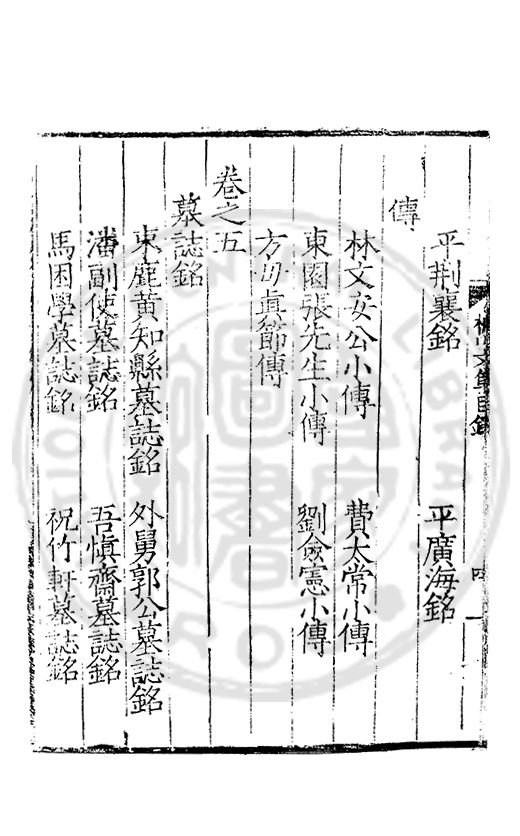 平荆襄銘　平廣海銘
傳
林文安公小傳　費太常小傳
東園張先生小傳　劉僉憲小傳
方毋眞節傳
卷之五
墓誌銘
東鹿黄知縣墓誌銘　外舅郭公墓誌銘
潘副使墓誌銘　吾愼齋墓誌銘
馬困學墓誌銘　祝竹軒墓誌銘